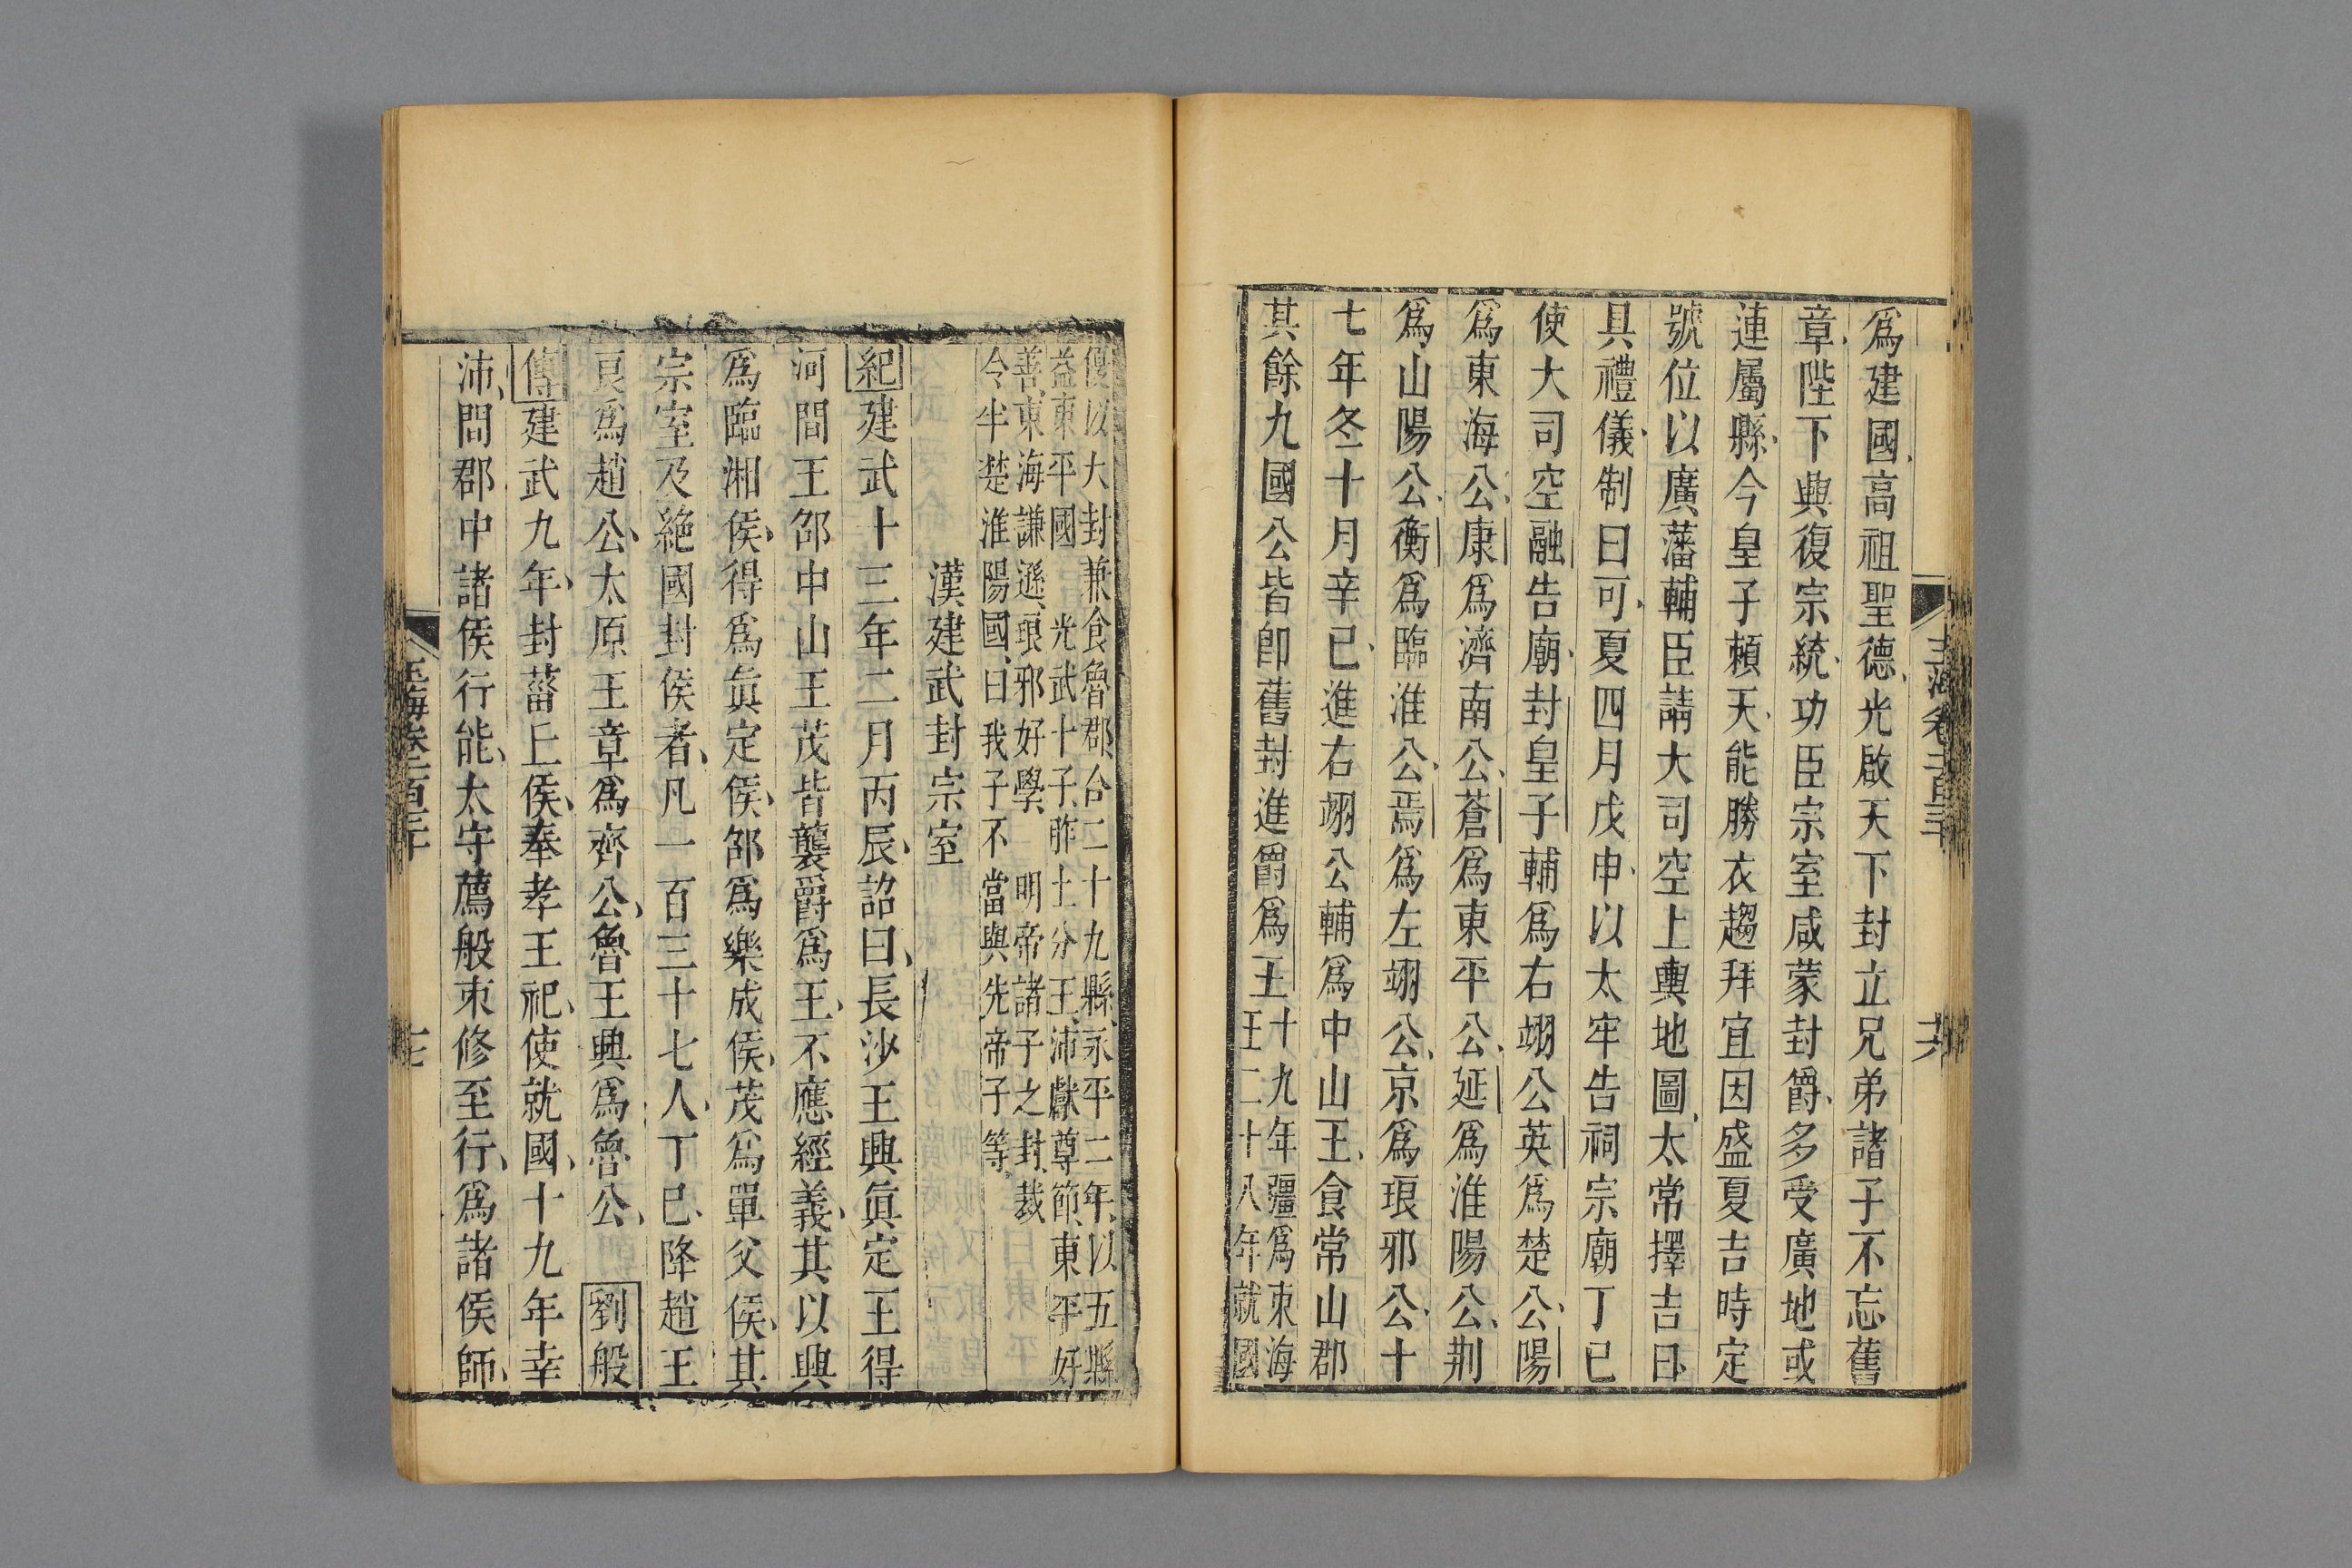 爲建國高祖聖德光啟天下封立兄弟諸子不忘舊
章陛下興復宗統功臣宗室咸蒙封爵多受廣地或
連屬縣今皇子賴天能勝衣趨拜宜因盛夏吉時定
號位以廣藩輔臣請大司空上輿地圖太常擇吉日
具禮儀制曰可夏四月戊申以太牢告祠宗廟丁巳
使大司空融告廟封皇子輔爲右翊公英爲楚公陽
爲東海公康爲濟南公蒼爲東平公延爲淮陽公荆
爲山陽公衡爲臨淮公焉爲左翊公京爲琅邪公十
七年冬十月辛巳進右翊公輔爲中山王食常山郡
其餘九國公皆卽舊封進爵爲王
十九年疆爲東海
王二十八年就國
優以大封兼食魯郡合二十九縣永平二年以五縣
益東平國 光武十子胙土分王沛獻尊節東平好
善東海謙遜琅邪好學 明帝諸子之封裁
令半楚淮陽國曰我子不當與先帝子等
漢建武封宗室
紀建武十三年二月丙辰詔曰長沙王興眞定王得
河間王邵中山王茂皆襲爵爲王不應經義其以興
爲臨湘侯得爲眞定侯邵爲樂成侯茂爲單父侯其
宗室及絕國封侯者凡一百三十七人丁巳降趙王
良爲趙公太原王章爲齊公魯王興爲魯公 劉般
傳建武九年封菑丘侯奉孝王祀使就國十九年幸
沛問郡中諸侯行能太守薦般束修至行爲諸侯師